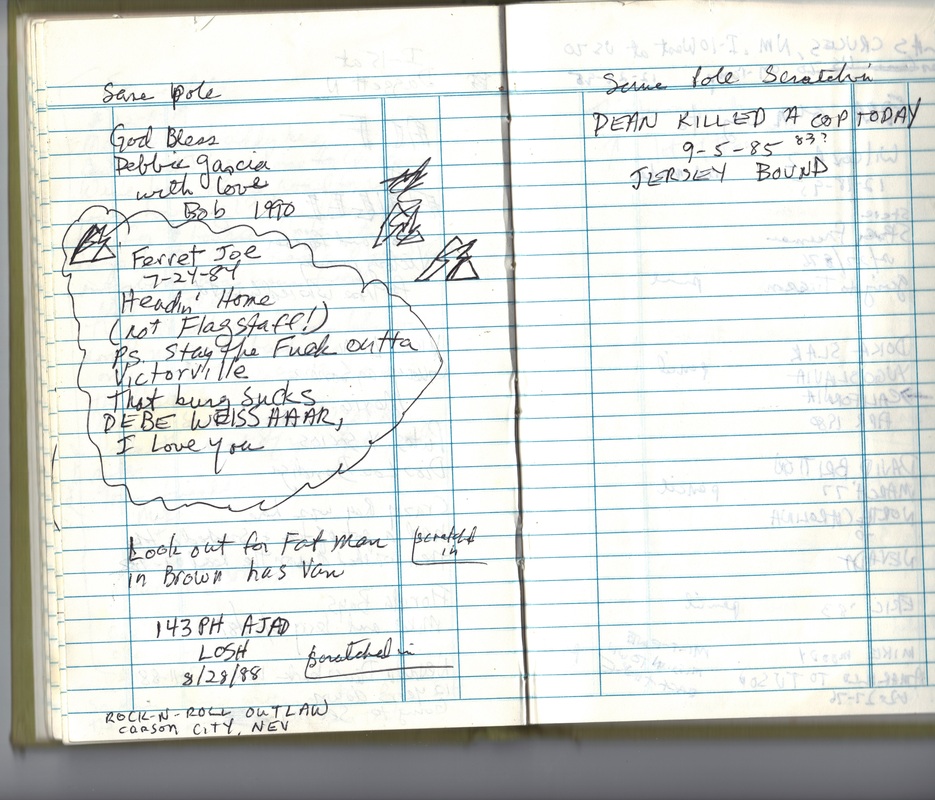 Same pole
God Bless
Debbie Garcia
with love
Bob 1990
Ferret Joe
7-24-84
Headin' Home
(not Flagstaff!)
PS. Stay the Fuck outta
Victorville
That burg Sucks
DEBE WEISSAAAR,
I love you
Look out for Fat man
in Brown has Van
scratched
in
143 PH AJAD
LOSH
8/28/88
scratched in
ROCK-N-ROLL OUTLAW
CARSON CITY, NEV
Same Pole Scratched in
DEAN KILLED A COP TODAY
9-5-85 83?
JERSEY BOUND